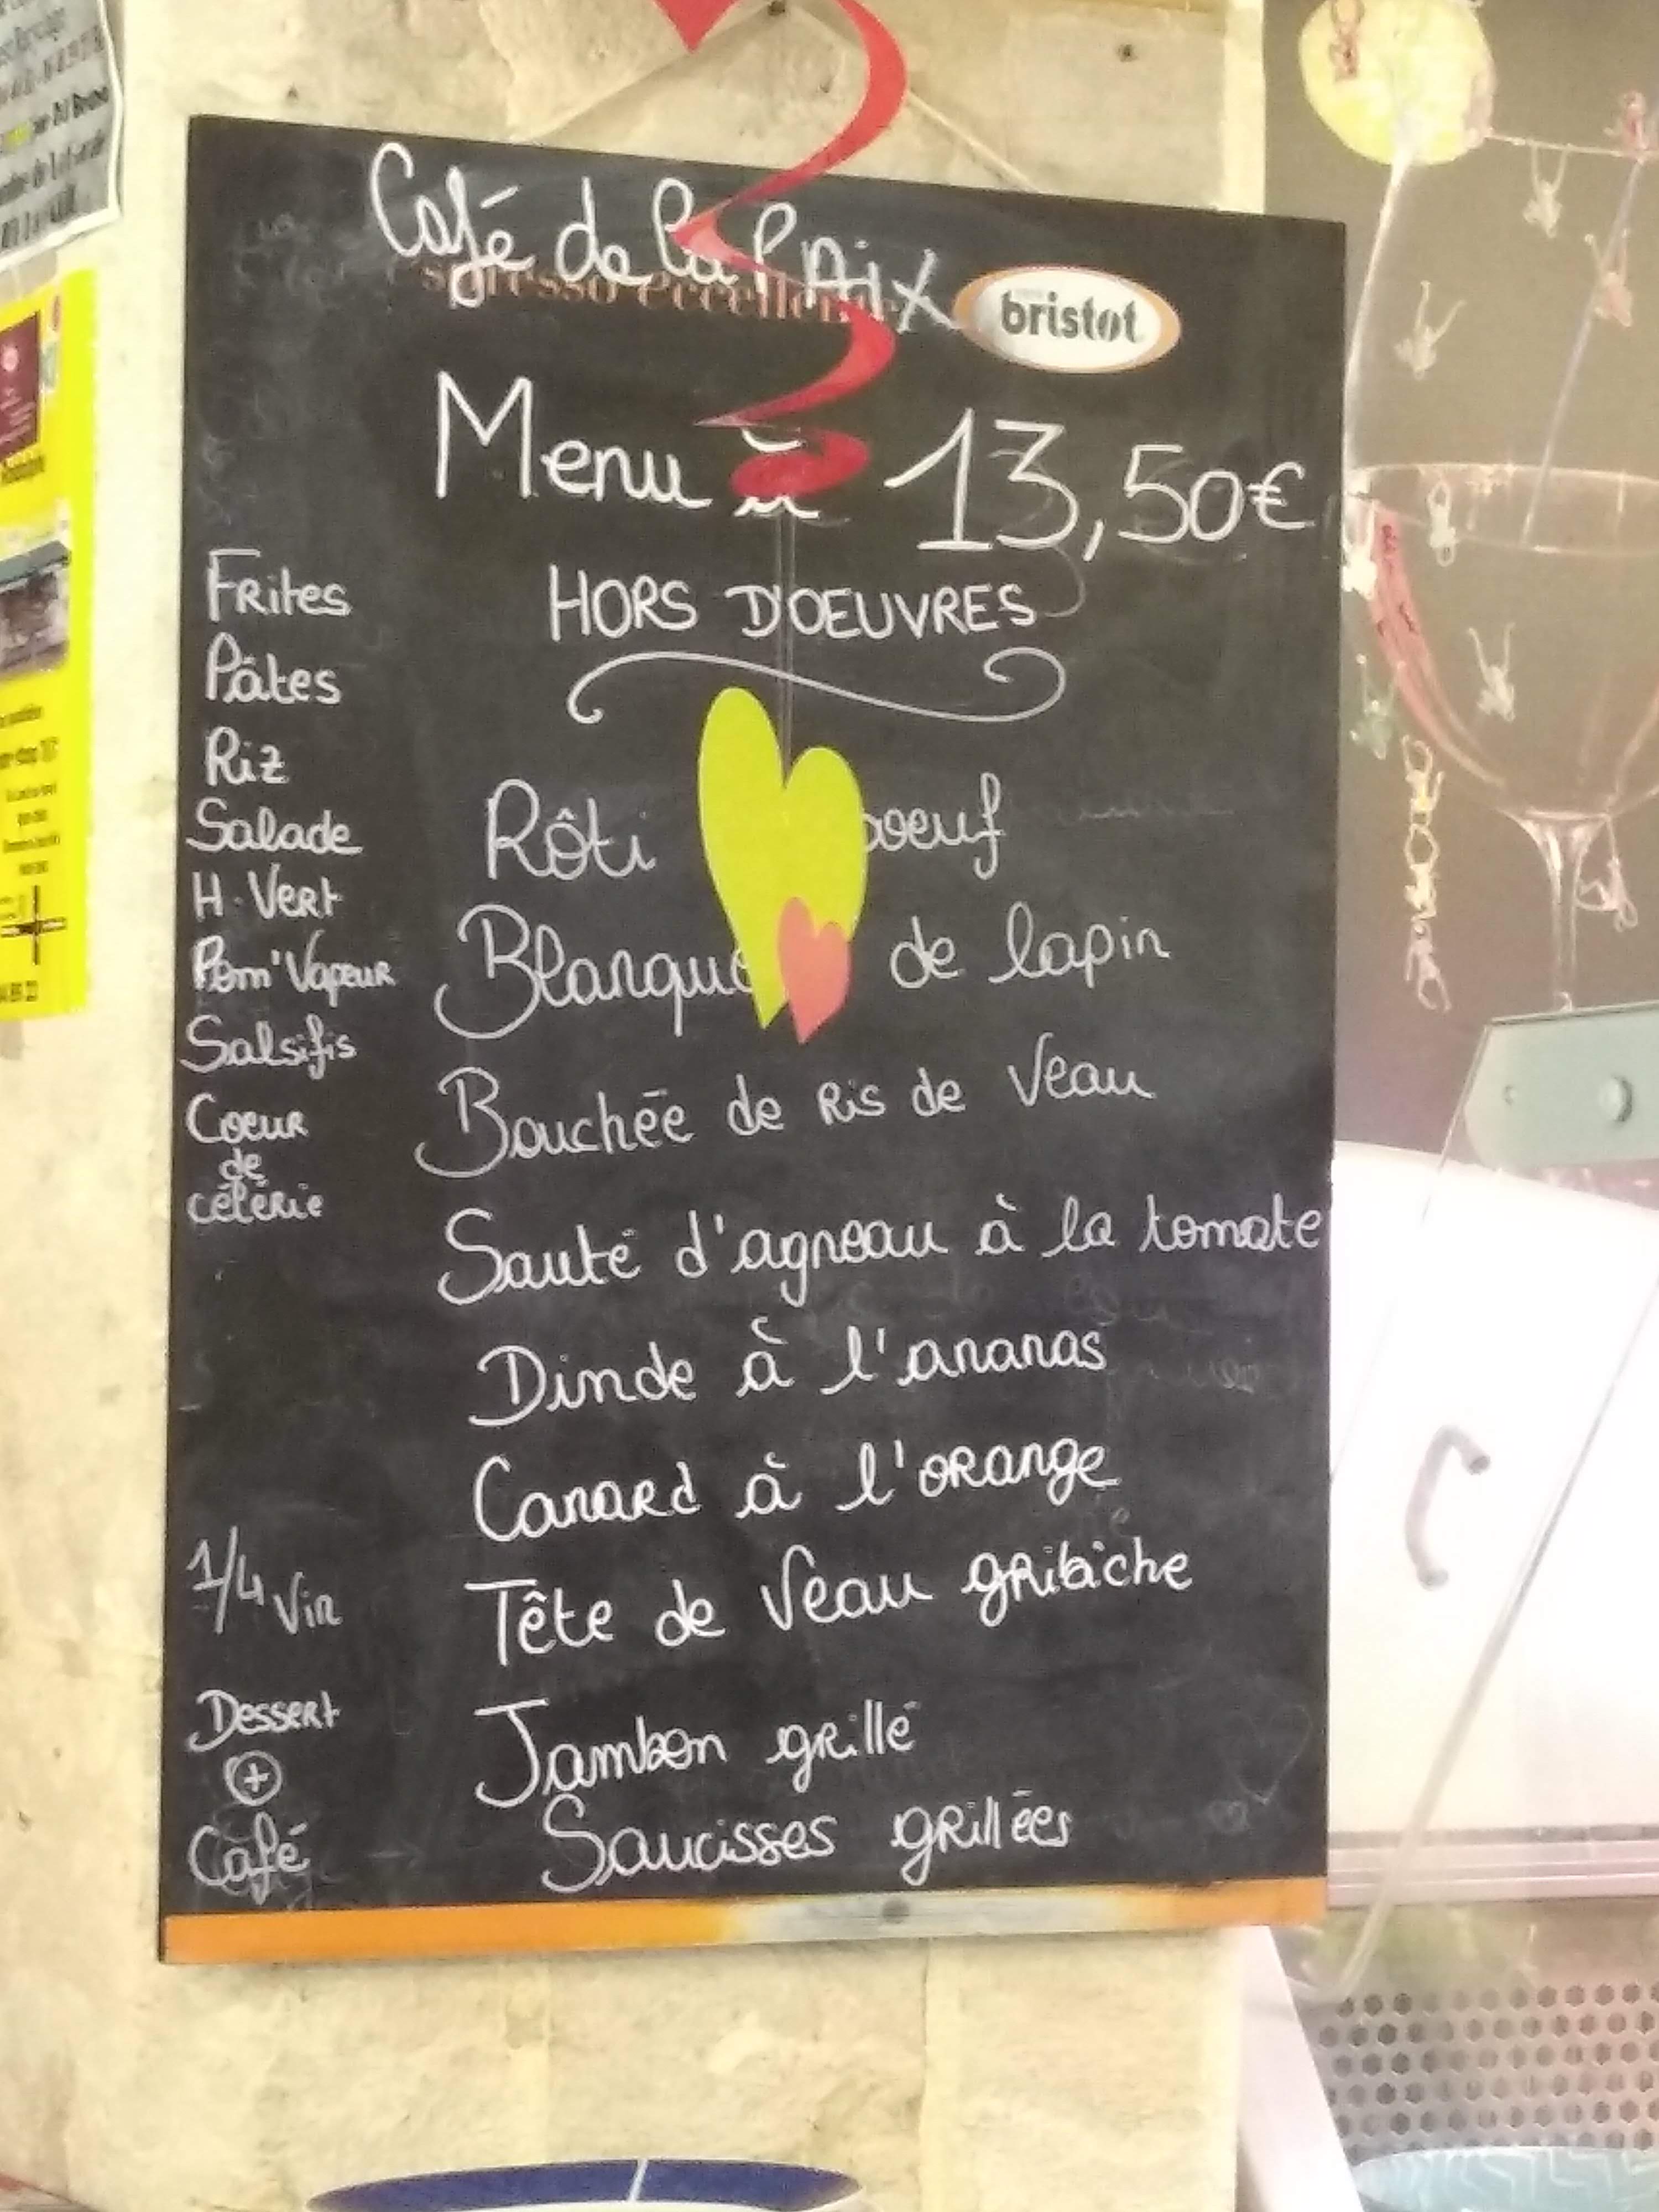 Café de la PAix
espresso eccellente
bristot
Menu à 13,50€
HORS D'OEUVRES
Frites
Pâtes
Riz
Salade
H. Vert
Pom' Vapeur
Salsifis
Coeur
de
célérie
1/4 Vin
Dessert
+
Café
Rôti boeuf
Blanque de lapin
Bouchée de Ris de Veau
Sauté d'agneau à la tomate
Dinde à l'ananas
Canard à l'orange
Tête de Veau gribiche
Jambon grillé
Saucisses grillées